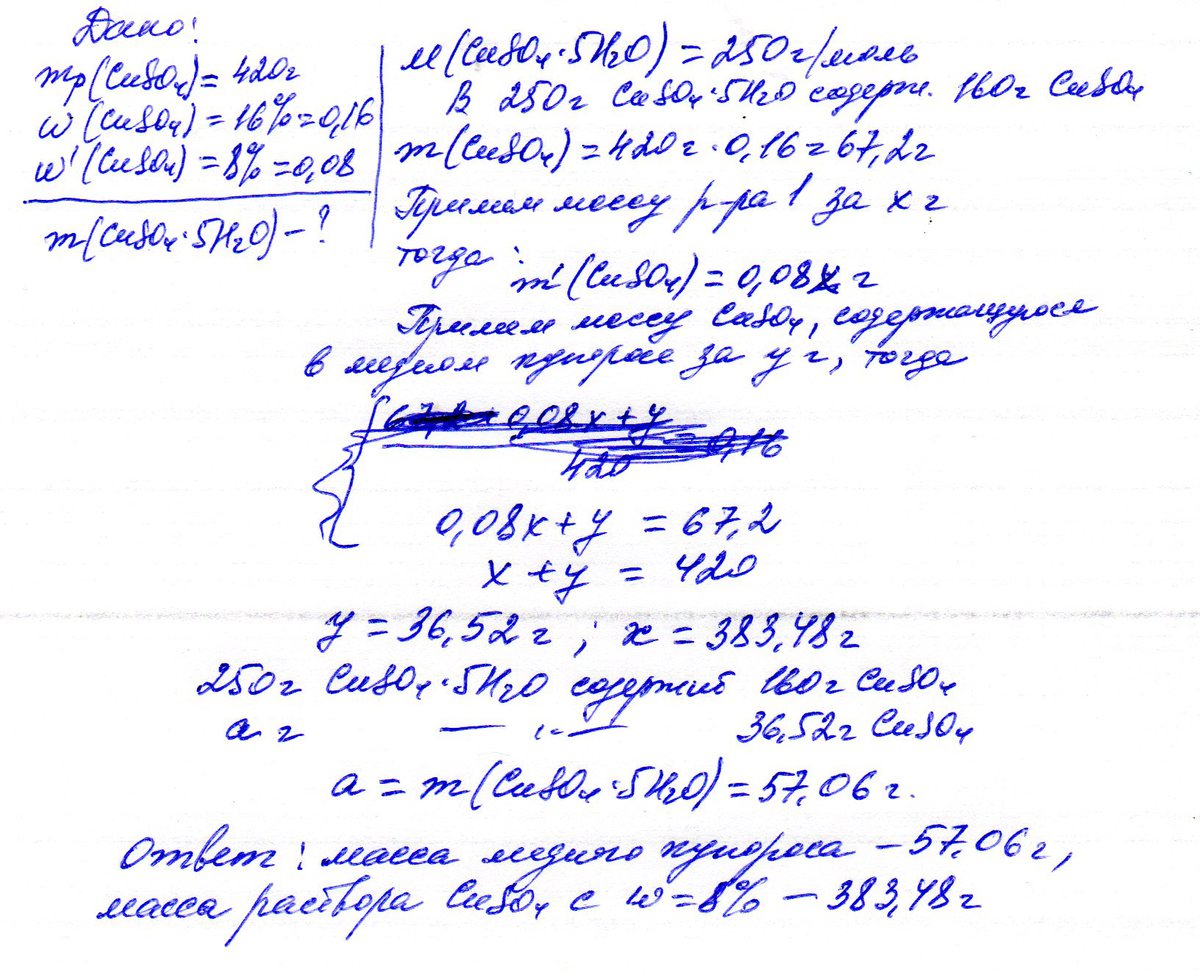 Дано:
mр(CuSO₄) = 420г
w(CuSO₄) = 16% = 0,16
w'(CuSO₄) = 8% = 0,08
m(CuSO₄·5H₂O) – ?
M(CuSO₄·5H₂O) = 250г/моль
В 250г CuSO₄·5H₂O содерж. 160г CuSO₄
m(CuSO₄) = 420г · 0,16 = 67,2г
Примем массу р-ра 1 за x г
тогда:
m'(CuSO₄) = 0,08x г
Примем массу CuSO₄, содержащуюся
в медном купоросе за y г, тогда
67,2 0,08x + y
= 0,16
420
0,08x + y = 67,2
x + y = 420
y = 36,52г ; x = 383,48г
250г CuSO₄·5H₂O содержит 160г CuSO₄
a г — „ — 36,52г CuSO₄
a = m(CuSO₄·5H₂O) = 57,06г.
Ответ: масса медного купороса – 57,06г,
масса раствора CuSO₄ с w = 8% – 383,48г